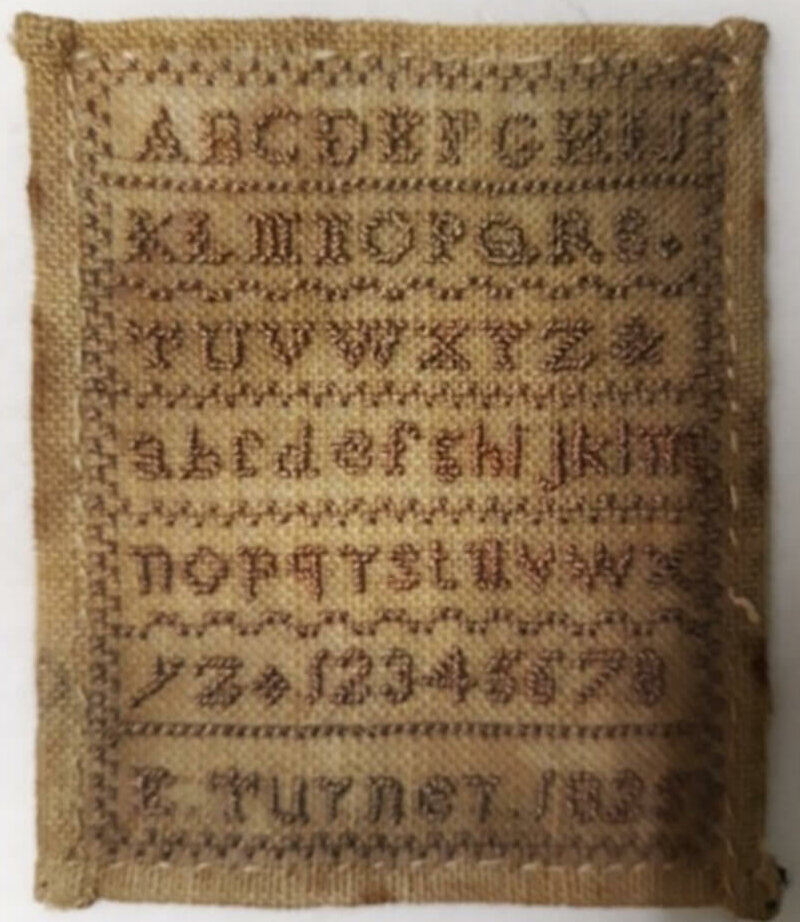 ABCDEFGHIJ
KLMNOPQRS
TUVWXYZ&
abcdefghijklm
nopqrstuvwx
yz 12345678
E. Turner. 1825